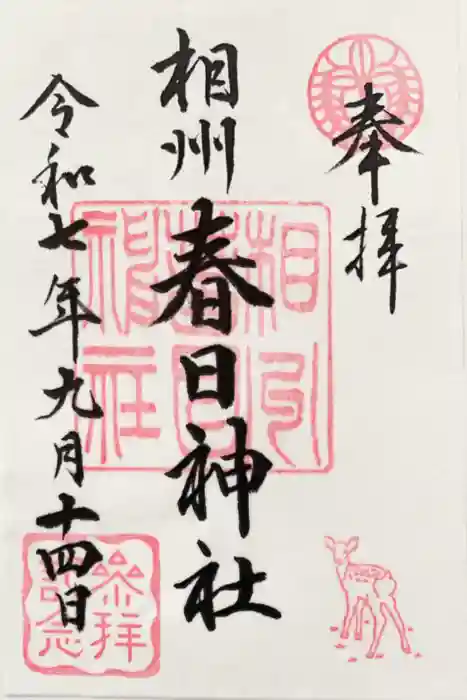 奉拝
相州
春日神社
令和七年九月十四日
相州春日神社
参拝記念